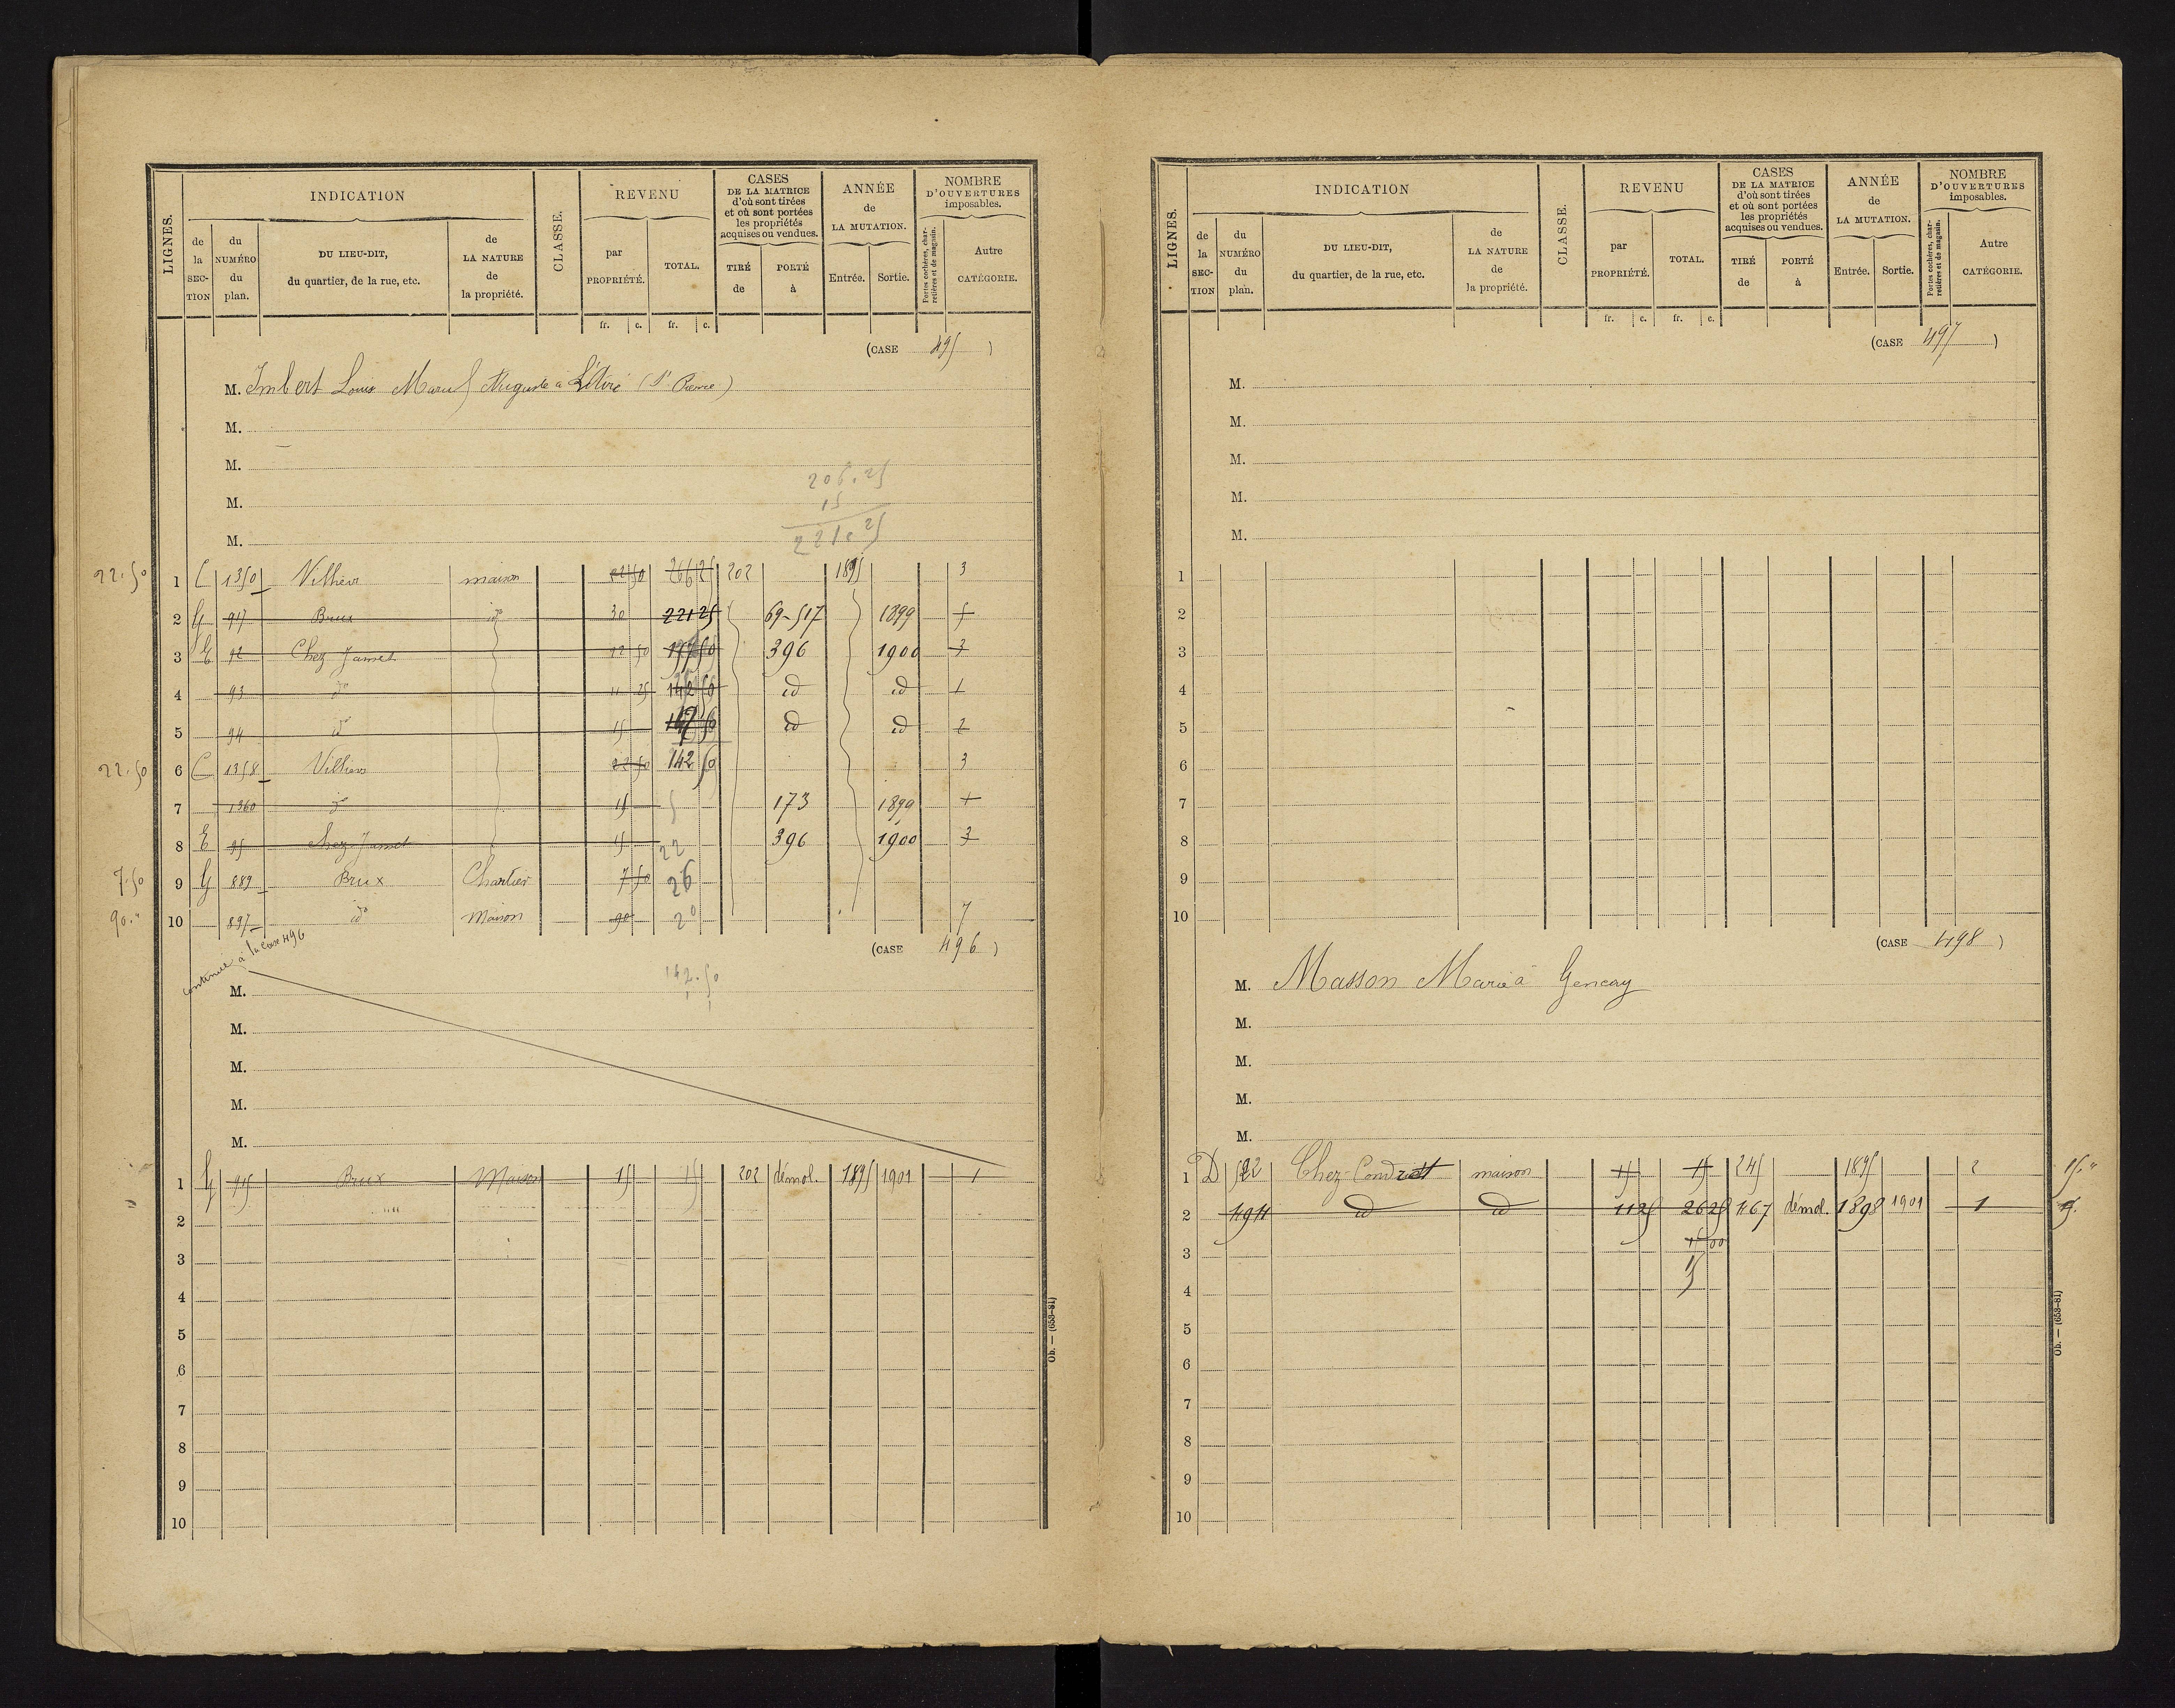 LIGNES.
INDICATION
de la SECTION
du NUMÉRO du plan.
DU LIEU-DIT, du quartier, de la rue, etc.
de LA NATURE de la propriété.
CLASSE.
REVENU
par PROPRIÉTÉ.
TOTAL.
CASES DE LA MATRICE d'où sont tirées et où sont portées les propriétés acquises ou vendues.
TIRÉ de
PORTÉ à
ANNÉE de LA MUTATION.
Entrée.
Sortie.
NOMBRE D'OUVERTURES imposables.
Portes cochères, charretières et de magasin.
Autre CATÉGORIE.
fr. c. fr. c.
(CASE 495)
M. Imbert Louis Marcel Auguste à
M.
M.
M.
M.
206.25
15
221.25
22.50 1 C 1350 Villiers maison 22 50 266 25 202 1895 3
2 G 917 Brux id 30 221 25 69-517 1899 5
3 E 92 Chez Jamet 22 50 177 50 396 1900 3
4 93 do 11 25 142 50 id id 1
5 94 id 15 147 50 id id 2
22.50 6 C 1358 Villiers 22 50 142 50 3
7 1360 do 15 173 1899 1
8 E 95 Chez Jamet 15 22 396 1900 3
7.50 9 G 889 Brux Chantier 7 50 26
90." 10 897 ido Maison 90 20 7
continué à la case 496
(CASE 496)
142.50
M.
M.
M.
M.
M.
1 G 915 Brux Maison 15 15 202 démol. 1895 1901 1
2
3
4
5
6
7
8
9
10
Ob. — (653-81)
LIGNES.
INDICATION
de la SECTION
du NUMÉRO du plan.
DU LIEU-DIT, du quartier, de la rue, etc.
de LA NATURE de la propriété.
CLASSE.
REVENU
par PROPRIÉTÉ.
TOTAL.
CASES DE LA MATRICE d'où sont tirées et où sont portées les propriétés acquises ou vendues.
TIRÉ de
PORTÉ à
ANNÉE de LA MUTATION.
Entrée.
Sortie.
NOMBRE D'OUVERTURES imposables.
Portes cochères, charretières et de magasin.
Autre CATÉGORIE.
fr. c. fr. c.
(CASE 497)
M.
M.
M.
M.
M.
1
2
3
4
5
6
7
8
9
10
(CASE 498)
M. Masson Marie à Gençay
M.
M.
M.
M.
1 D 522 maison 15 15 245 1895 2 15."
2 494 id id 11 25 26 25 467 démol. 1898 1901 1
3 15 00
4 15
5
6
7
8
9
10
Ob. — (653-81)